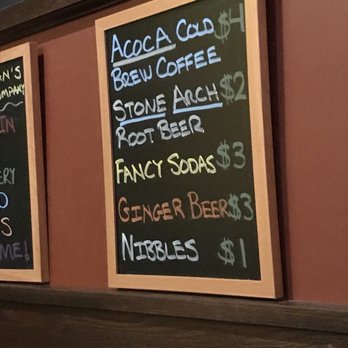 N'S
OMPANY
IN
ERY
O
S
ME!
ACOCA COLD $4
BREW COFFEE
STONE ARCH $2
ROOT BEER
FANCY SODAS $3
GINGER BEER $3
NIBBLES $1